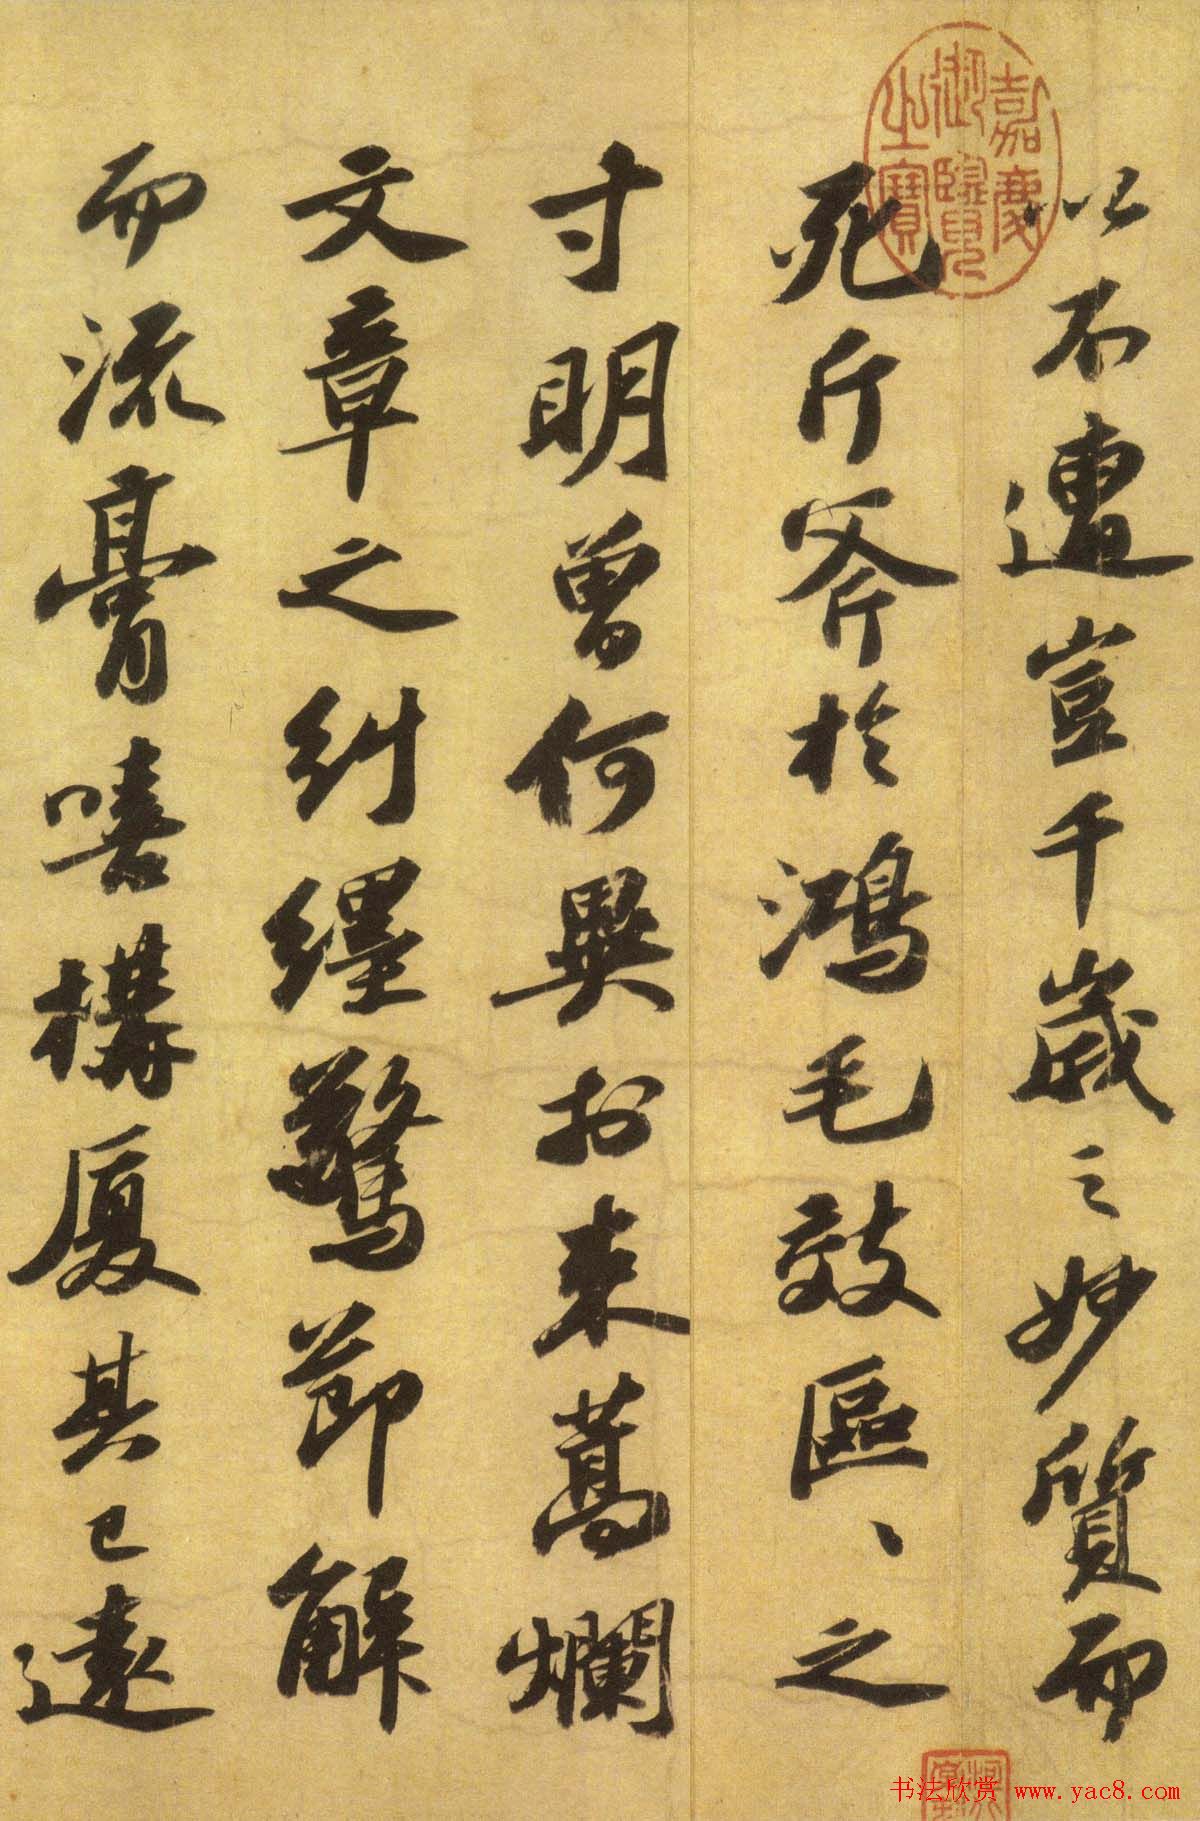 以不遭豈千歲之妙質而
死斤斧於鴻毛效區、之
寸明曾何異於束蒿爛
文章之糾纏驚節解
而流膏嘻構厦其已遠
嘉慶
御覽
之寶
书法欣赏 www.yac8.com